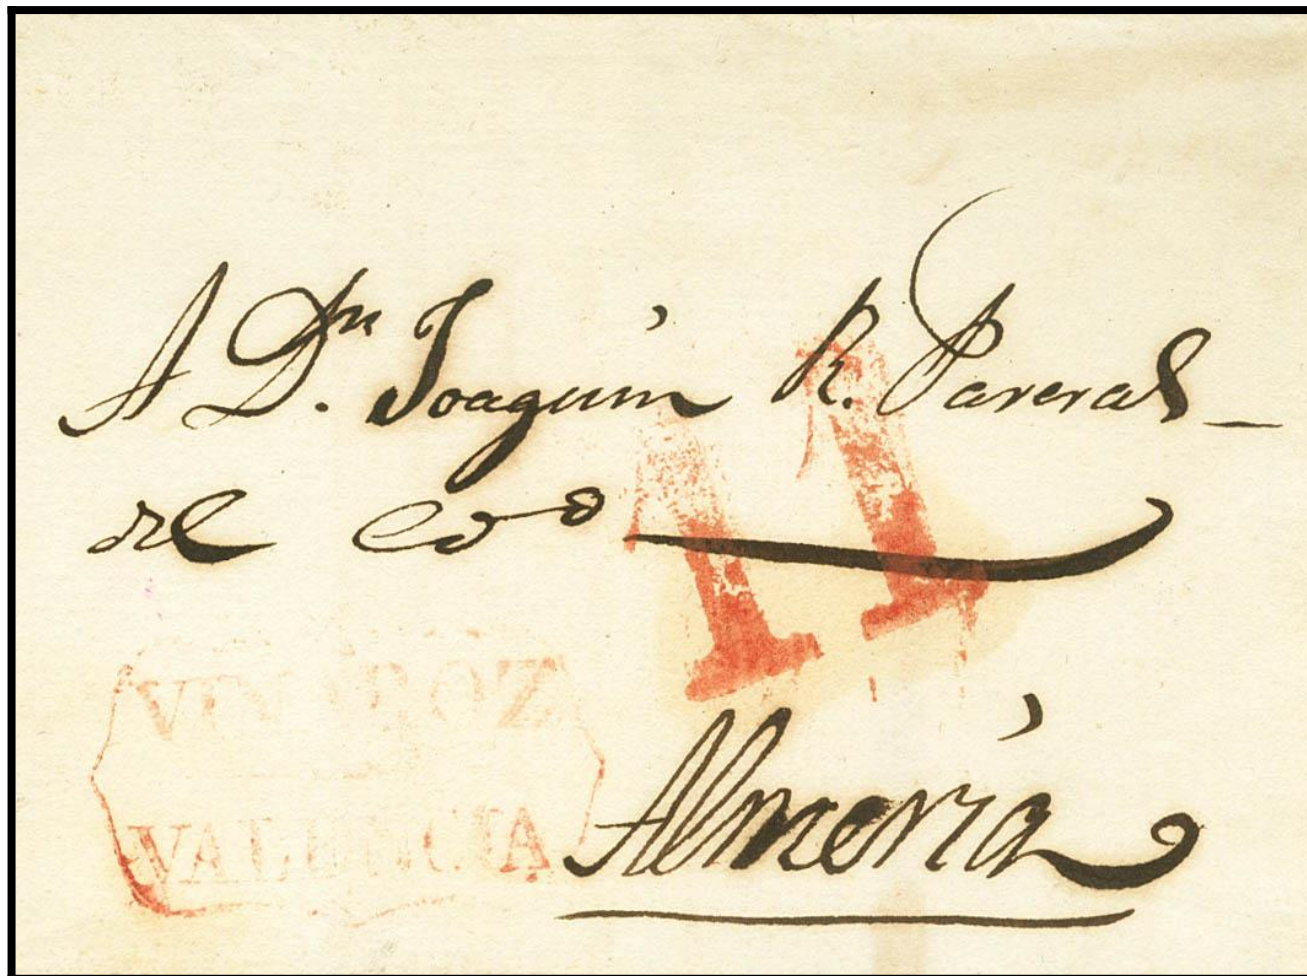 A Dn. Joaquin R. Pareral
del Coo
11
VINAROZ
VALENCIA
Almería